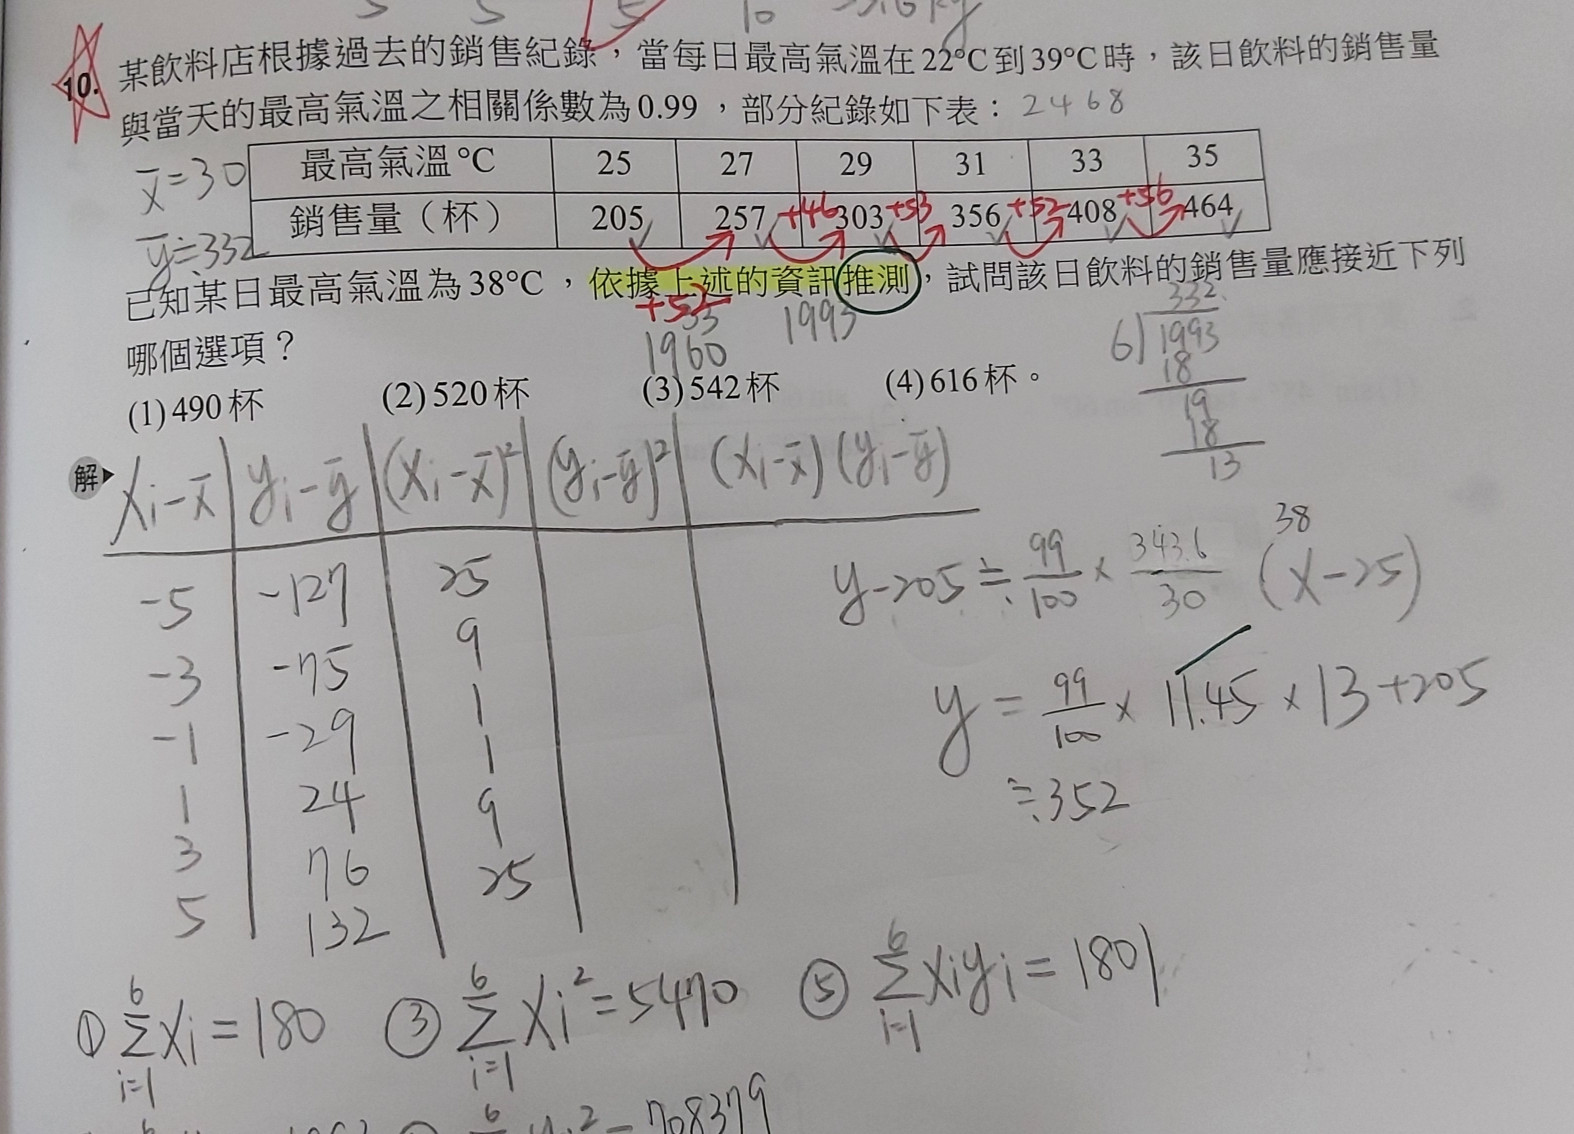 10. 某飲料店根據過去的銷售紀錄，當每日最高氣溫在22°C到39°C時，該日飲料的銷售量
與當天的最高氣溫之相關係數為0.99，部分紀錄如下表： 2468
x̄=30 最高氣溫°C 25 27 29 31 33 35
ȳ≒332 銷售量（杯） 205 257 +46 303 +53 356 +52 408 +56 464
已知某日最高氣溫為38°C，依據上述的資訊推測，試問該日飲料的銷售量應接近下列
+52 33 1993 332
哪個選項？ 1960 6)1993
(1)490杯 (2)520杯 (3)542杯 (4)616杯。 18
19
18
13
解 xi-x̄ yi-ȳ (xi-x̄)² (yi-ȳ)² (xi-x̄)(yi-ȳ)
-5 -127 25
-3 -75 9
-1 -29 1
1 24 1
3 76 9
5 132 25
38
y-205≒99/100×343.6/30(x-25)
y=99/100×11.45×13+205
≒352
① 6Σi=1 xi=180 ③ 6Σi=1 xi²=5470 ⑤ 6Σi=1 xiyi=1801
6 yi²=708379